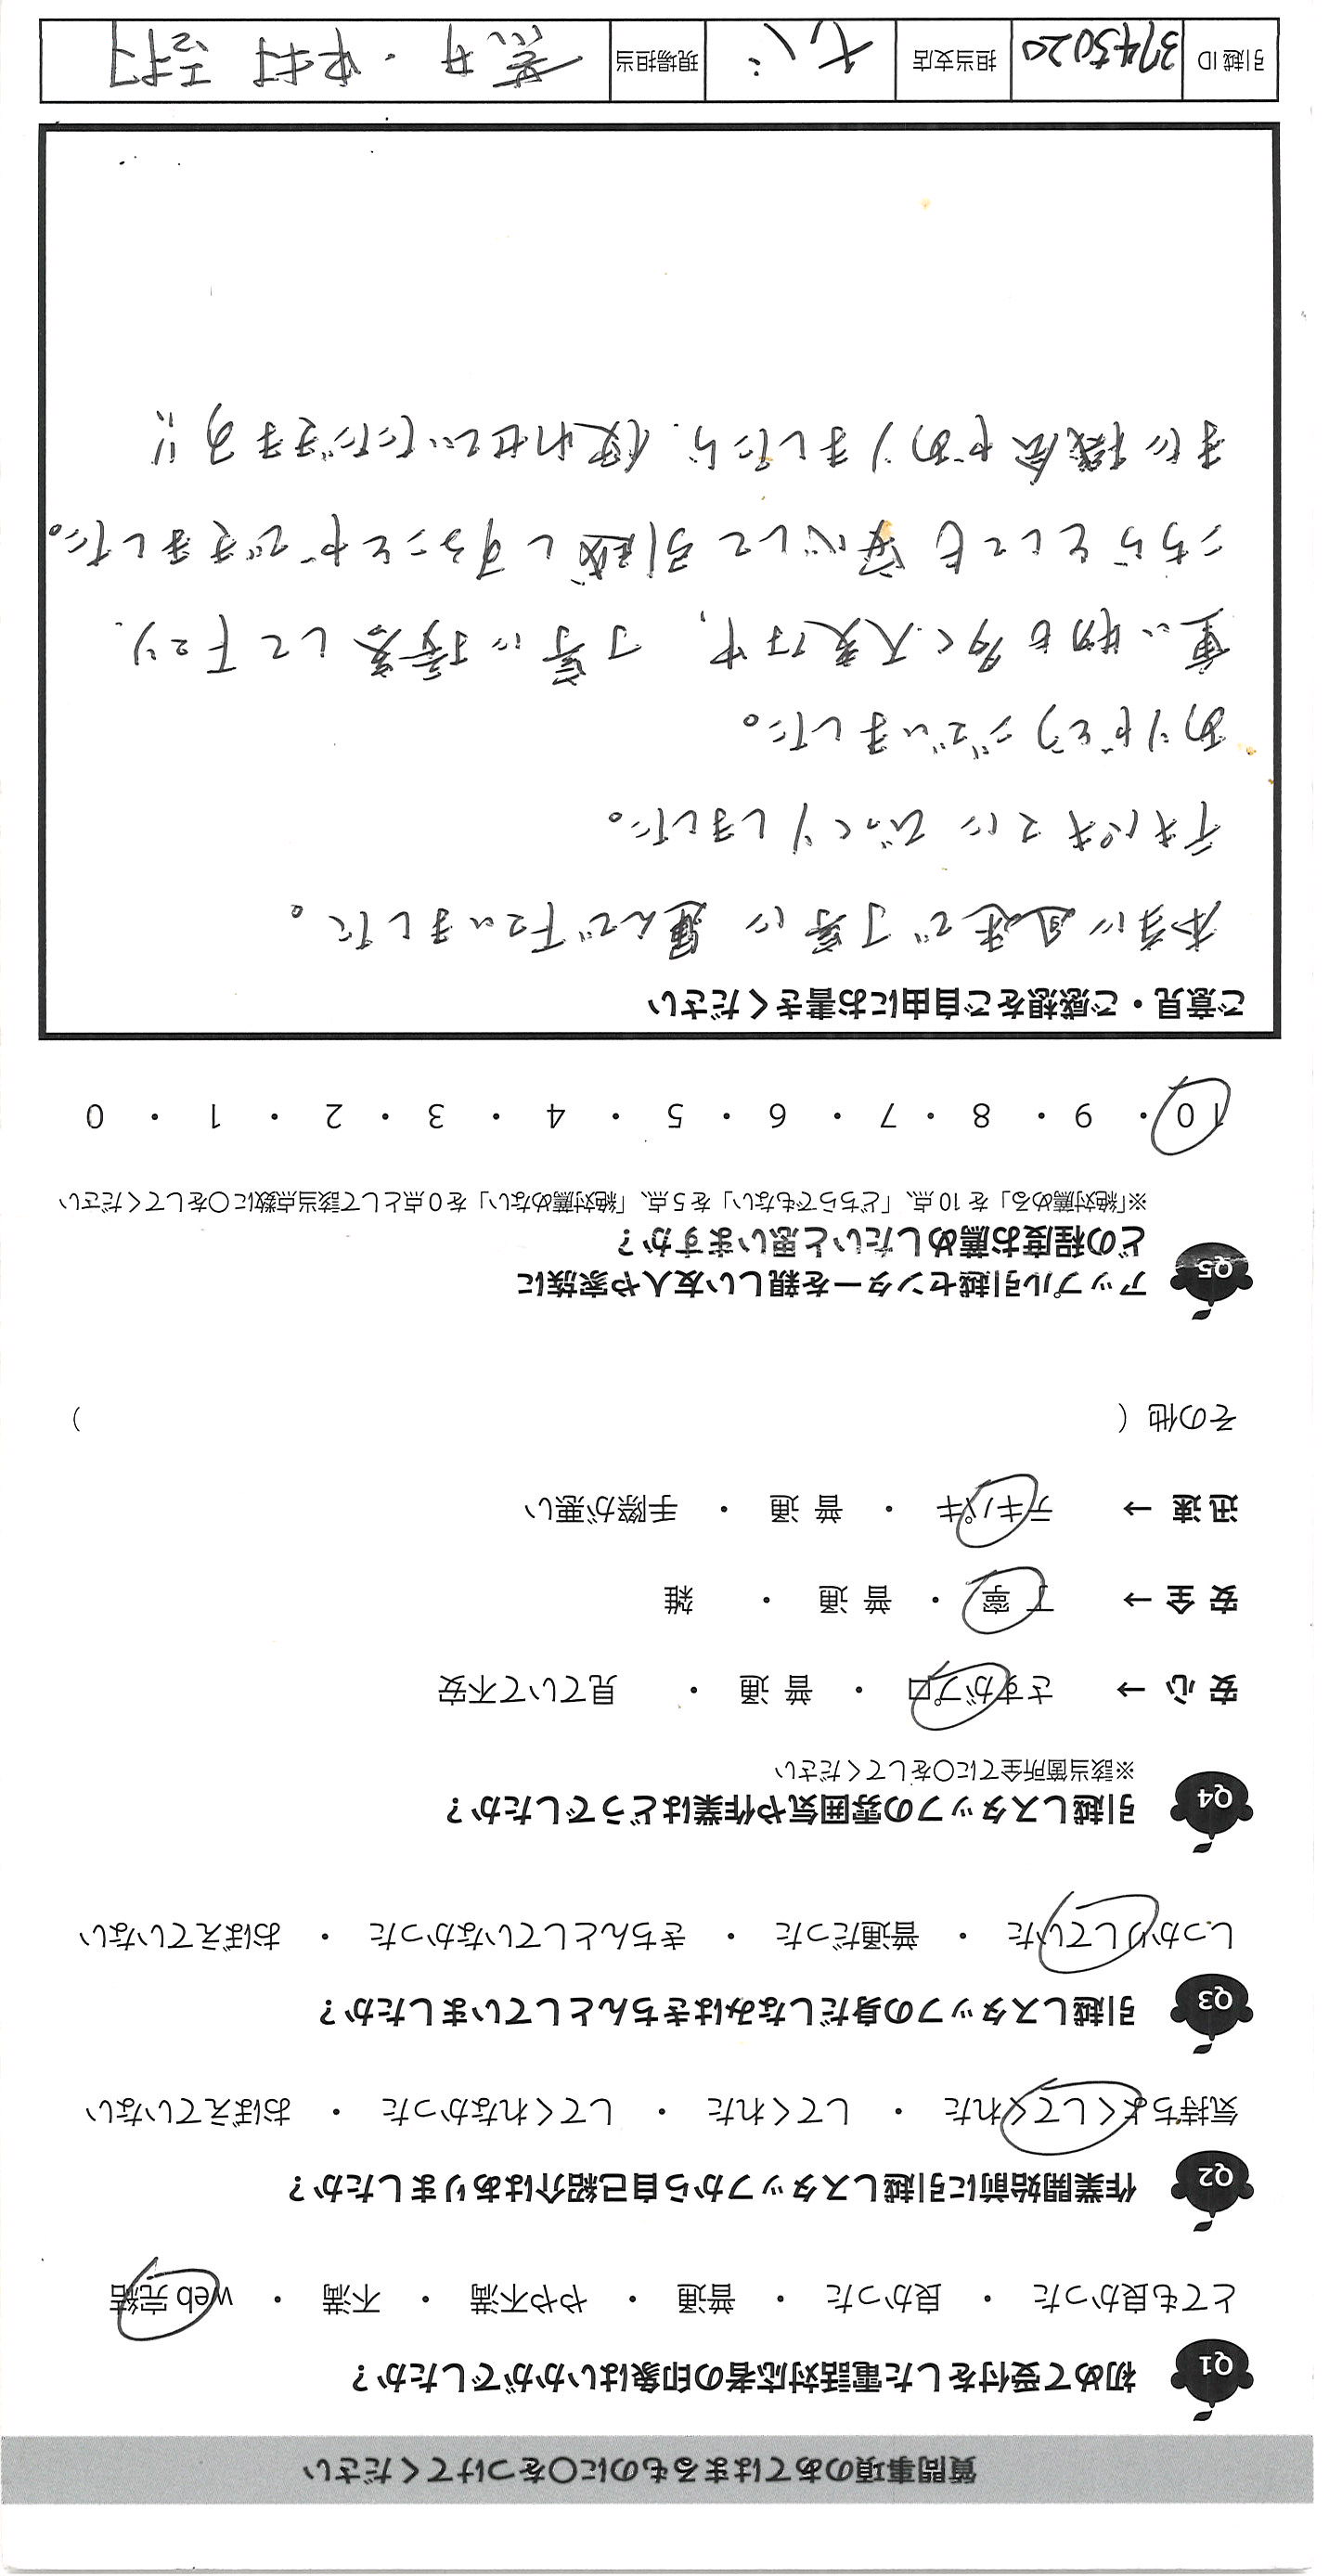 質問事項のあてはまるものに〇をつけてください
Q1 初めて受付をした電話対応者の印象はいかがでしたか？
とても良かった ・ 良かった ・ 普通 ・ やや不満 ・ 不満 ・ web 完結
Q2 作業開始前に引越しスタッフから自己紹介はありましたか？
気持ちよくしてくれた ・ してくれた ・ してくれなかった ・ おぼえていない
Q3 引越しスタッフの身だしなみはきちんとしていましたか？
しっかりしていた ・ 普通だった ・ きちんとしていなかった ・ おぼえていない
Q4 引越しスタッフの雰囲気や作業はどうでしたか？
※該当箇所全てに〇をしてください
安 心 → さすがプロ ・ 普 通 ・ 見ていて不安
安 全 → 丁 寧 ・ 普 通 ・ 雑
迅 速 → テキパキ ・ 普 通 ・ 手際が悪い
その他（ ）
Q5 アップル引越センターを親しい友人や家族に
どの程度お薦めしたいと思いますか？
※「絶対薦める」を 10 点、「どちらでもない」を 5 点、「絶対薦めない」を 0 点として該当点数に〇をしてください
10 ・ 9 ・ 8 ・ 7 ・ 6 ・ 5 ・ 4 ・ 3 ・ 2 ・ 1 ・ 0
ご意見・ご感想をご自由にお書きください
本当に迅速で丁寧に 運んで下さいました。
テキパキさに びっくりしました。
ありがとうございました。
重い物も多く大変な中、丁寧に接客して下さり、
こちらとしても 安心して引越しすることができました。
また機会がありましたら、使わせていただきます!!
引越 ID 3745020 担当支店 現場担当 荒井・中村